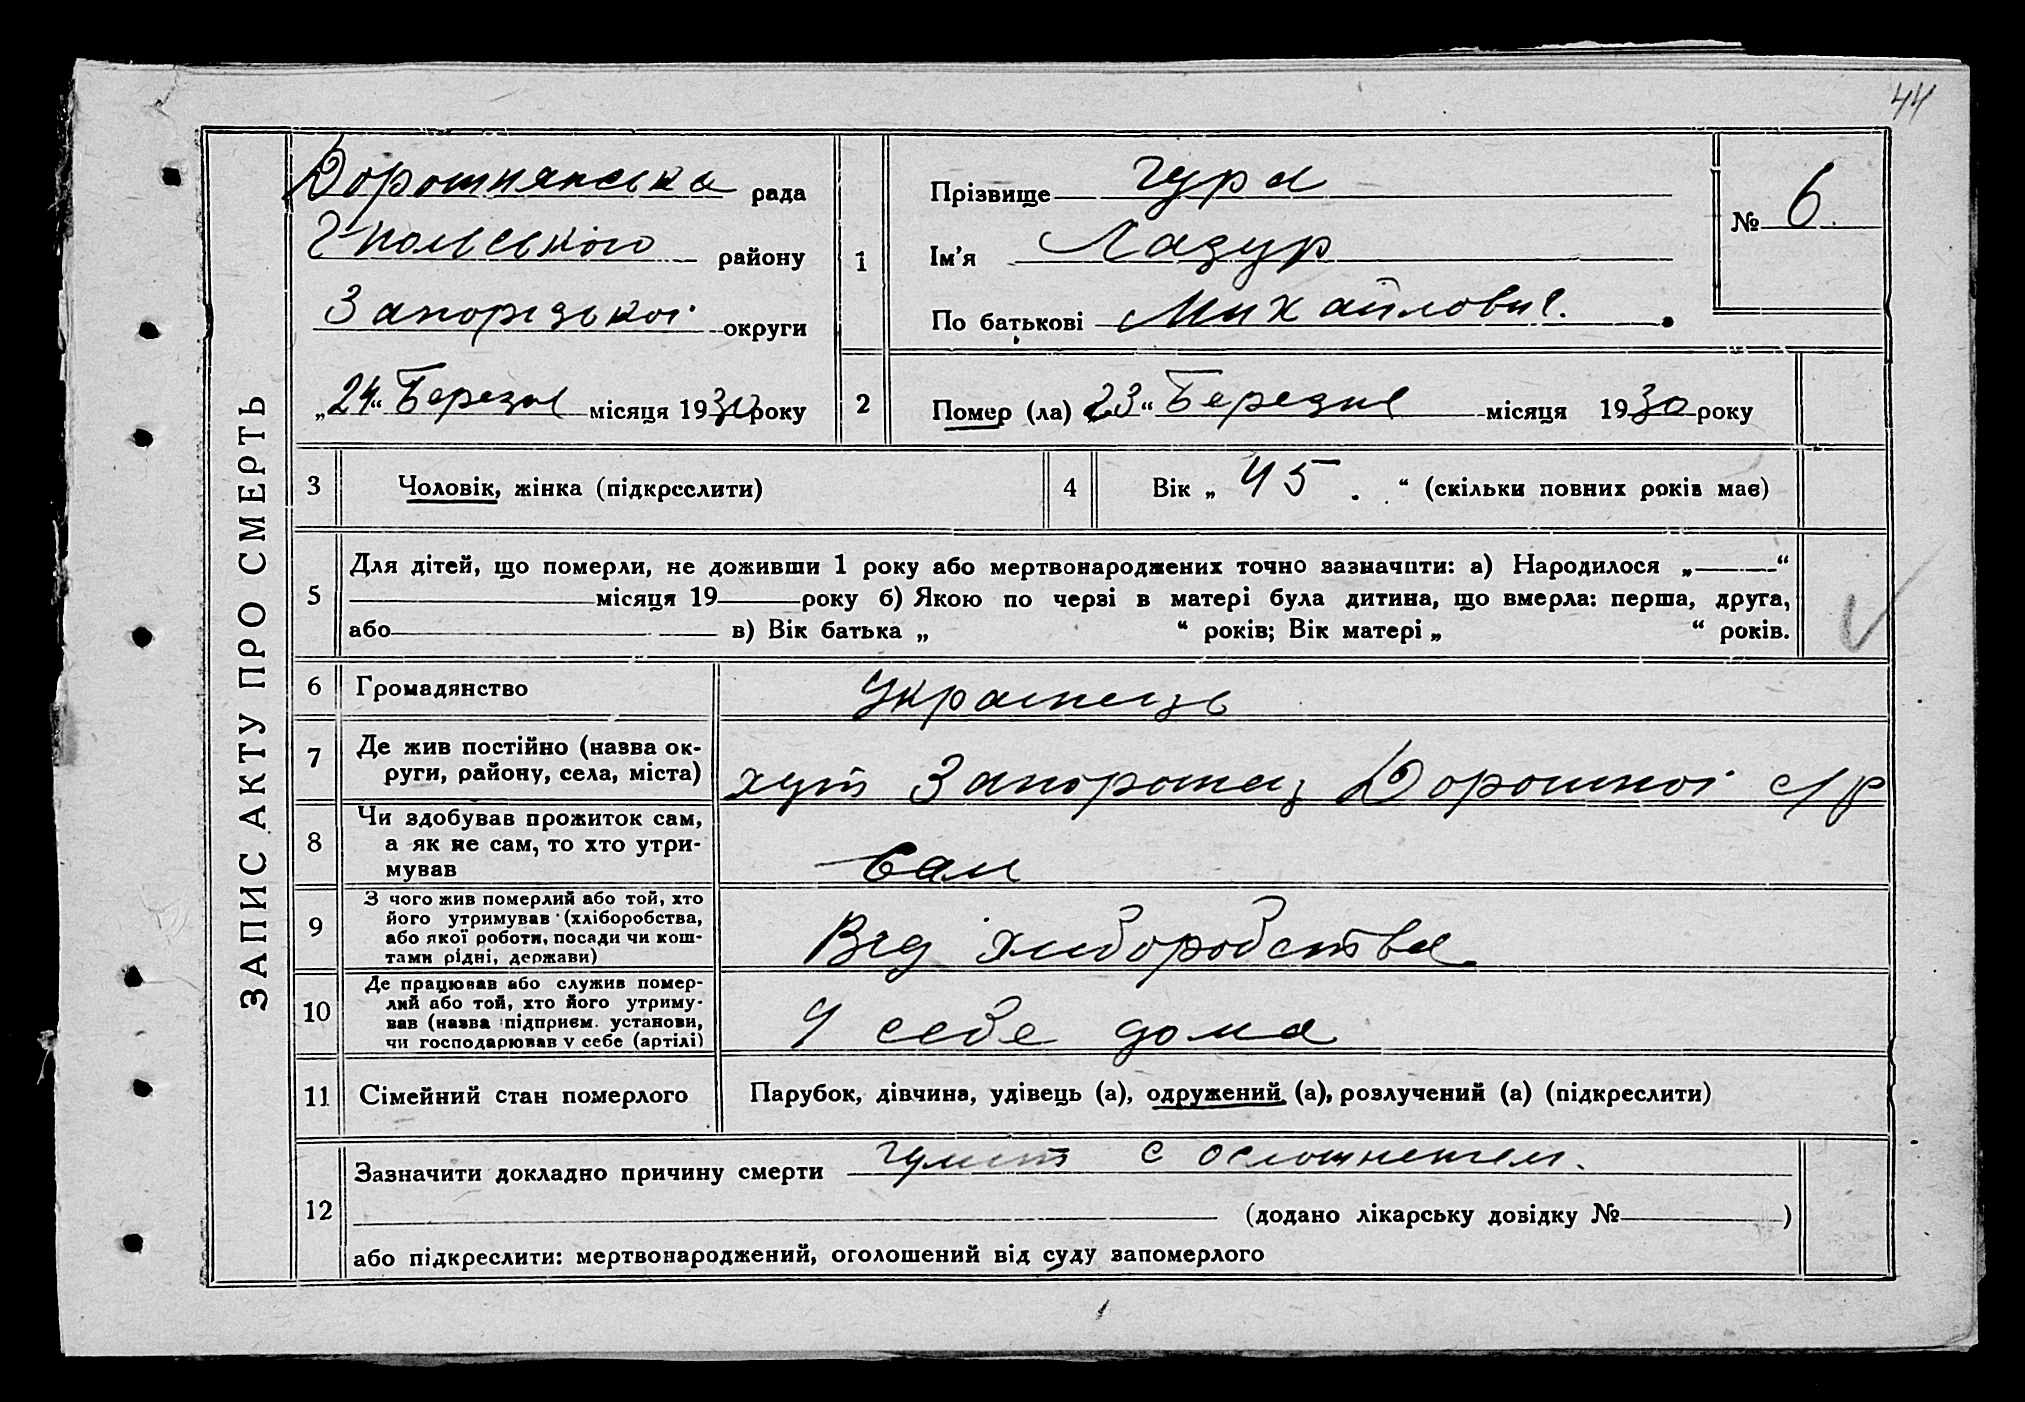 44
ЗАПИС АКТУ ПРО СМЕРТЬ
Дорошнянська рада
Г-польського району
Запорізької округи
„24“ Березня місяця 1930 року
1
Прізвище Гура
Ім'я Лазур
По батькові Михайлович.
№ 6.
2
Помер (ла) 23“ Березня місяця 1930 року
3 Чоловік, жінка (підкреслити)
4 Вік „45.“ (скільки повних років має)
5
Для дітей, що померли, не доживши 1 року або мертвонароджених точно зазначити: а) Народилося „ “
місяця 19 року б) Якою по черзі в матері була дитина, що вмерла: перша, друга,
або в) Вік батька „ “ років; Вік матері „ “ років.
6 Громадянство Українець
7 Де жив постійно (назва ок-
руги, району, села, міста) хут Запорожец Дорошної с/р
8 Чи здобував прожиток сам,
а як не сам, то хто утри-
мував Сам
9 З чого жив померлий або той, хто
його утримував (хліборобства,
або якої роботи, посади чи кош-
тами рідні, держави) Від хліборобства
10 Де працював або служив помер-
лий або той, хто його утриму-
вав (назва підприєм. установи,
чи господарював у себе (артілі) У себе дома
11 Сімейний стан померлого Парубок, дівчина, удівець (а), одружений (а), розлучений (а) (підкреслити)
12
Зазначити докладно причину смерти с осложнением.
(додано лікарську довідку № )
або підкреслити: мертвонароджений, оголошений від суду запомерлого